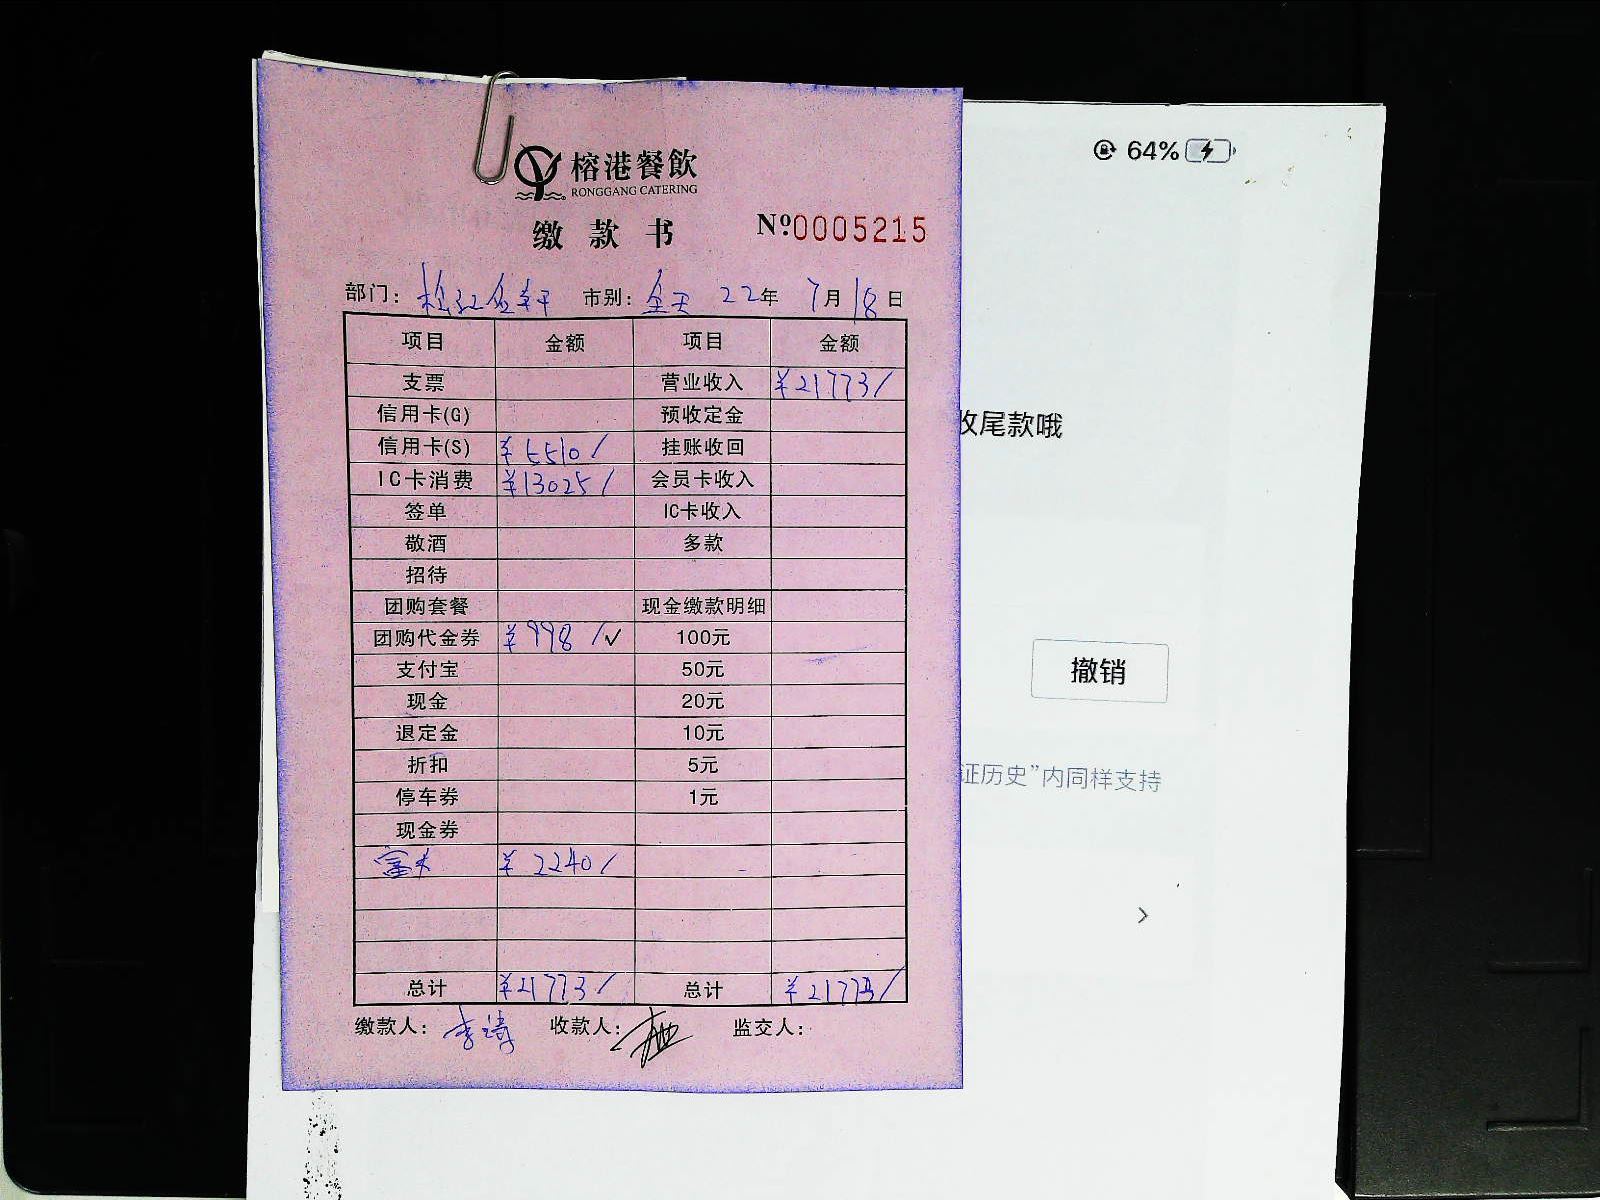 64%
榕港餐飲
RONGGANG CATERING
缴款书 Nº0005215
部门: 松江金轩 市别: 全天 22年 7月18日
项目 金额 项目 金额
支票 营业收入 ¥21773/
信用卡(G) 预收定金
收尾款哦
信用卡(S) ¥5510/ 挂账收回
IC卡消费 ¥13025/ 会员卡收入
签单 IC卡收入
敬酒 多款
招待
团购套餐 现金缴款明细
团购代金券 ¥998/✓ 100元
支付宝 50元
撤销
现金 20元
退定金 10元
折扣 5元
证历史”内同样支持
停车券 1元
现金券
¥2240/
总计 ¥21773/ 总计 ¥21773/
缴款人: 李涛 收款人: 监交人: